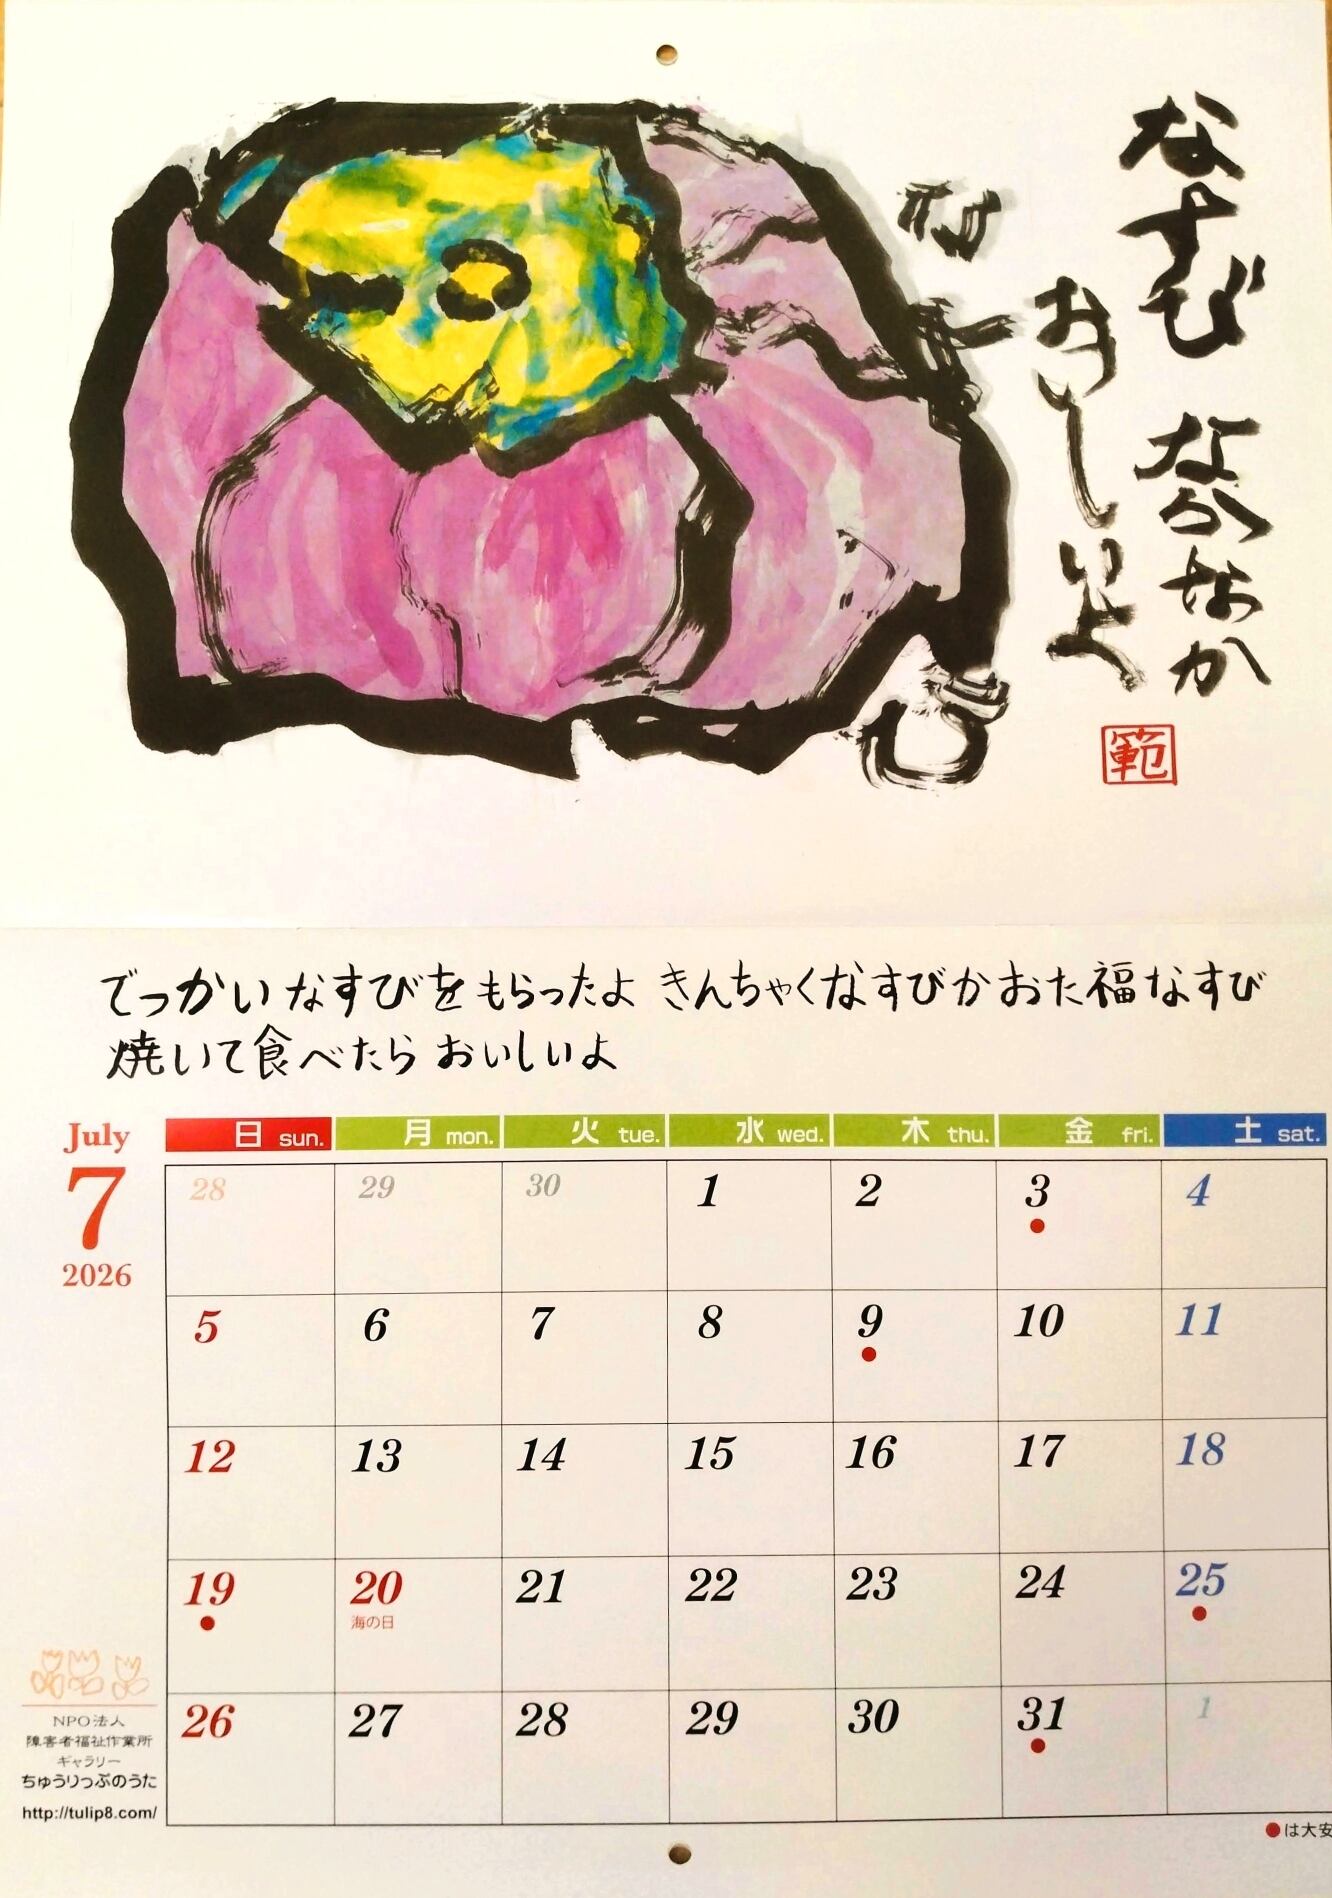 なすび なかなか
おいしいよ
なすび
範
でっかいなすびをもらったよ きんちゃくなすびかおた福なすび
焼いて食べたら おいしいよ
July
7
2026
日 sun. 月 mon. 火 tue. 水 wed. 木 thu. 金 fri. 土 sat.
28 29 30 1 2 3 4
5 6 7 8 9 10 11
12 13 14 15 16 17 18
19 20 21 22 23 24 25
海の日
26 27 28 29 30 31 1
NPO法人
障害者福祉作業所
ギャラリー
ちゅうりっぷのうた
http://tulip8.com/
●は大安